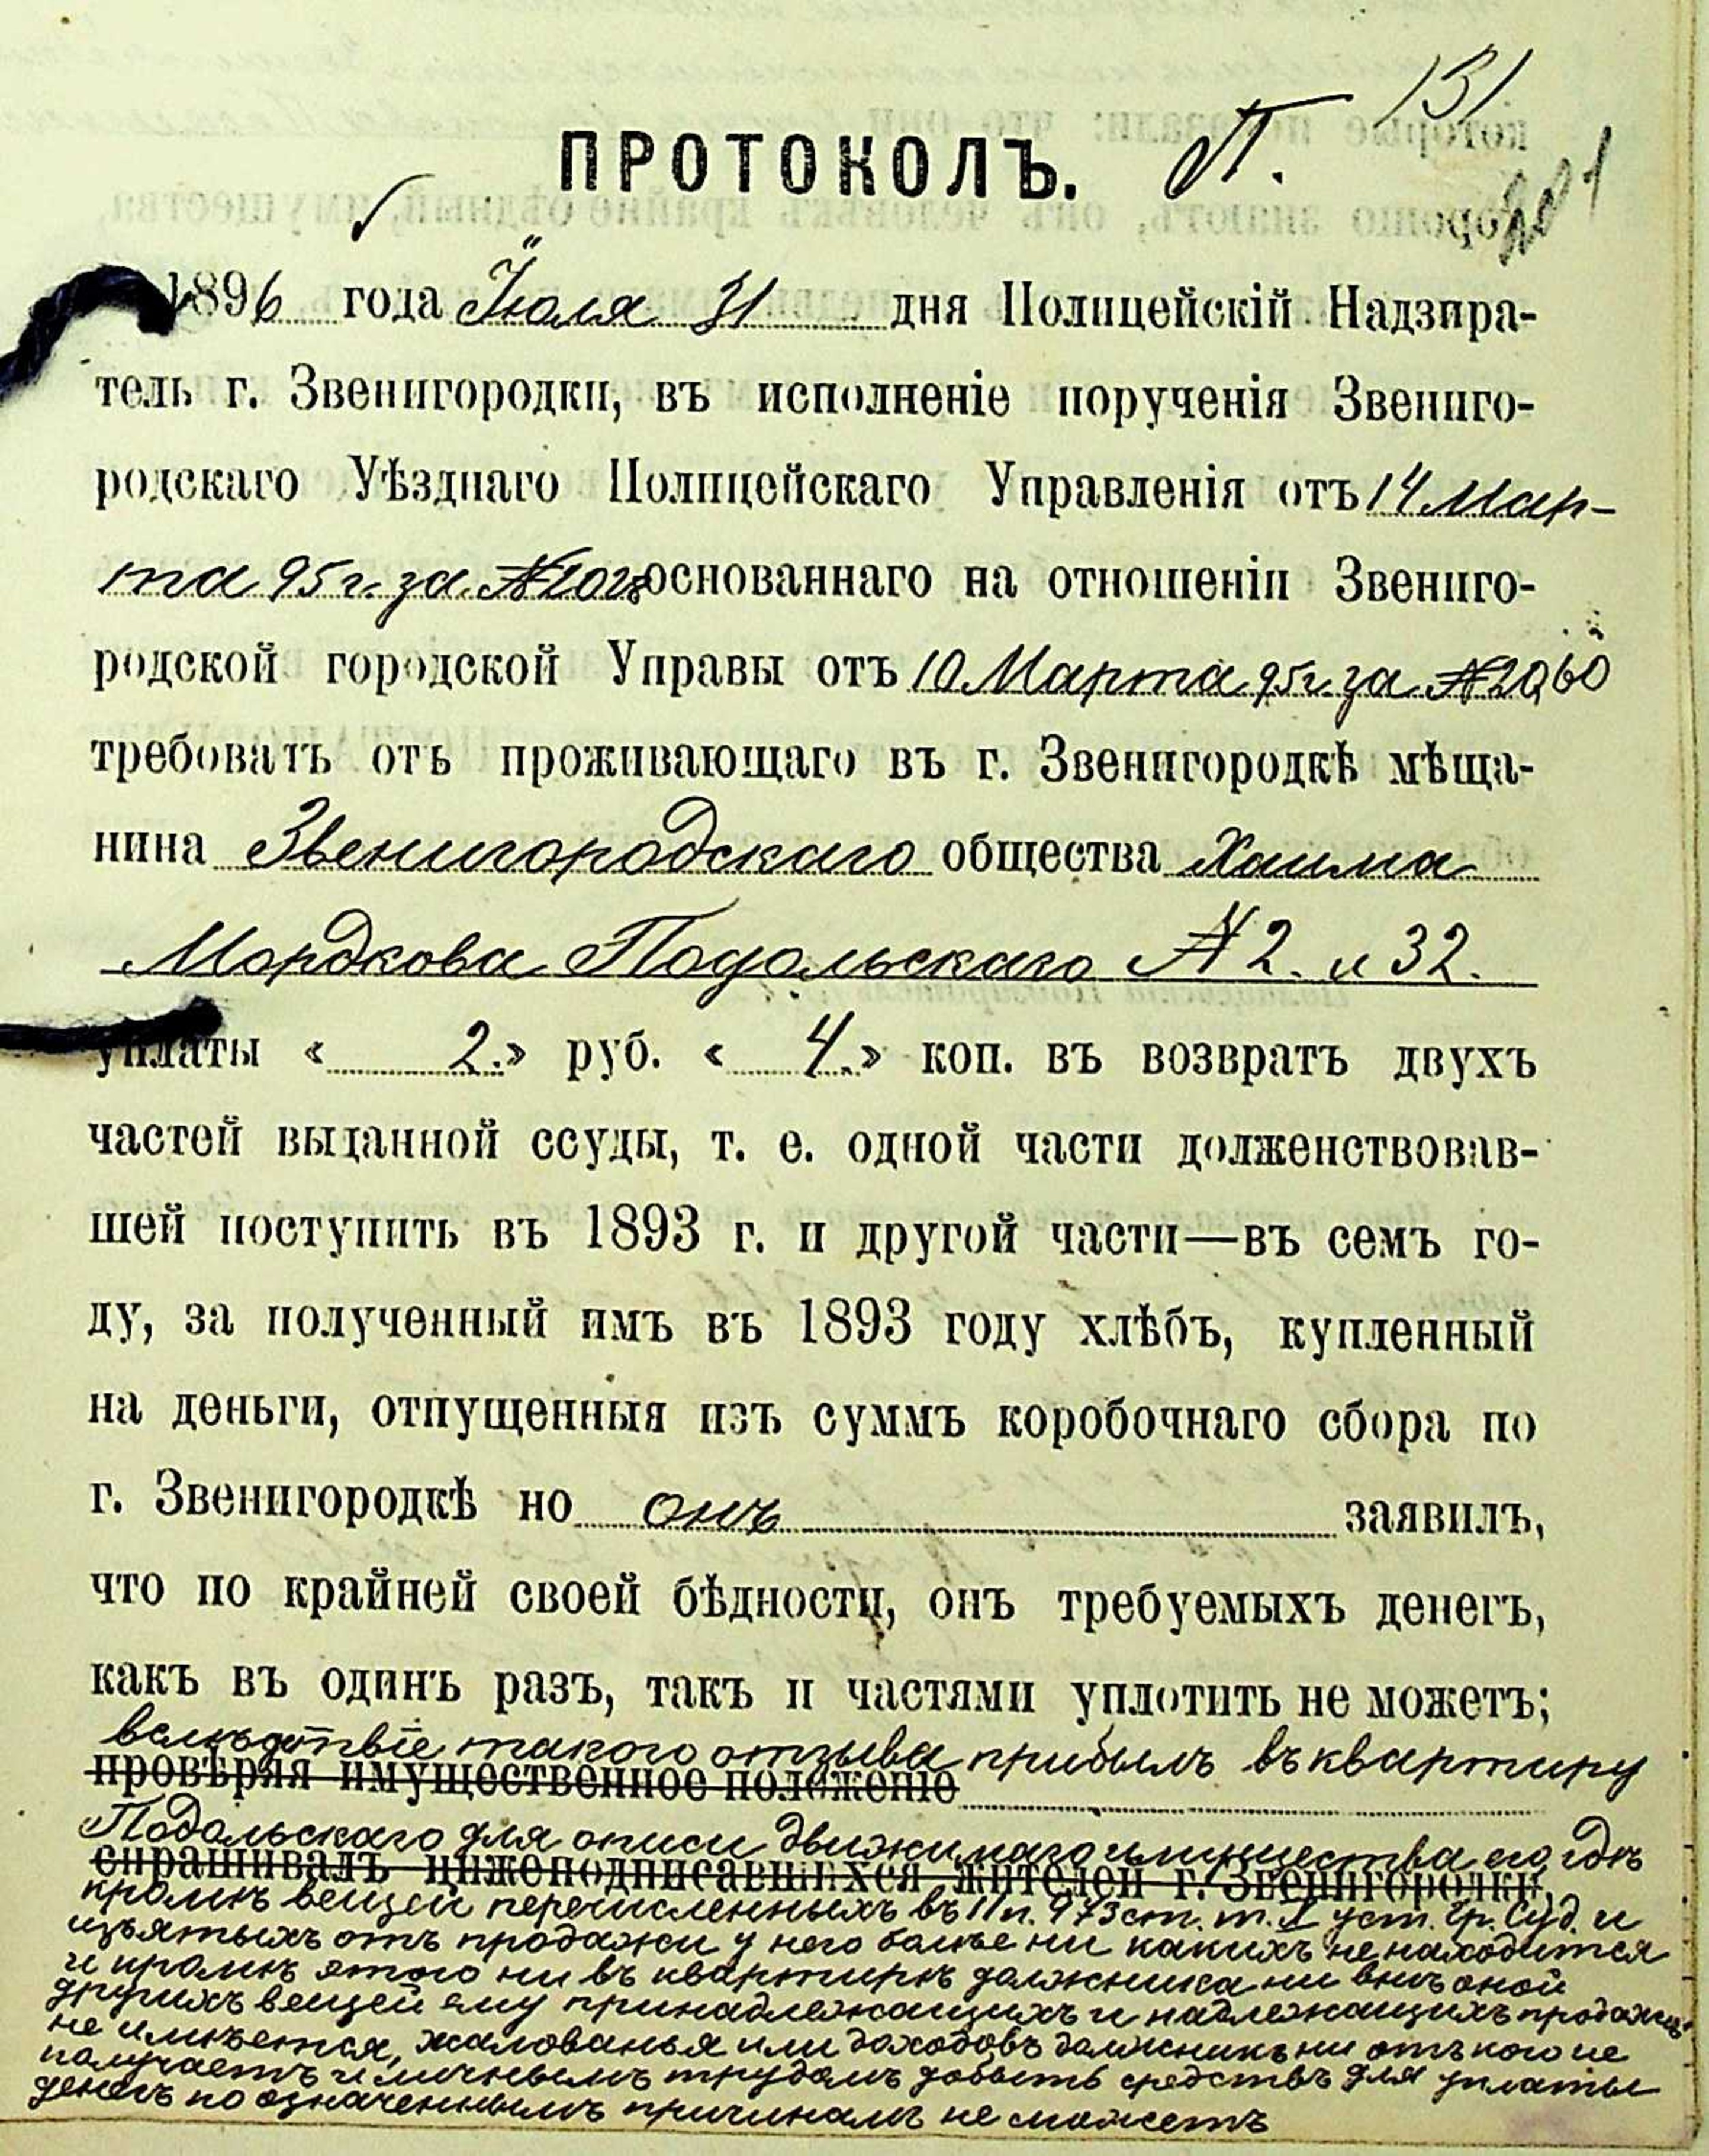 131
ПРОТОКОЛЪ. П.
201
1896 года Іюля 31 дня Полицейскій Надзира-
тель г. Звенигородки, въ исполненіе порученія Звениго-
родскаго Уѣзднаго Полицейскаго Управленія отъ 14 Мар-
та 95 г. за № основаннаго на отношеніи Звениго-
родской городской Управы отъ 10 Марта 95 г. за № 2060
требовать отъ проживающаго въ г. Звенигородкѣ мѣща-
нина Звенигородскаго общества Хаима
Мордкова Подольскаго № 2. и 32.
уплаты « 2.» руб. « 4.» коп. въ возвратъ двухъ
частей выданной ссуды, т. е. одной части долженствовав-
шей поступить въ 1893 г. и другой части—въ семъ го-
ду, за полученный имъ въ 1893 году хлѣбъ, купленный
на деньги, отпущенныя изъ суммъ коробочнаго сбора по
г. Звенигородкѣ но онъ заявилъ,
что по крайней своей бѣдности, онъ требуемыхъ денегъ,
какъ въ одинъ разъ, такъ и частями уплотить не можетъ;
вслѣдствіе такого отзыва прибылъ въ квартиру
провѣряя имущественное положеніе
Подольскаго для описи движимаго имущества его, гдѣ
спрашивалъ нижеподписавшихся жителей г. Звенигородки,
кромѣ вещей перечисленныхъ въ 11 п. 973 ст. т. X уст. Гр. Суд. и
изъятыхъ отъ продажи у него болѣе ни какихъ не находится
и кромѣ этого ни въ квартирѣ должника ни внѣ оной
другихъ вещей ему принадлежащихъ и надлежащихъ продажѣ
не имѣется, жалованья или доходовъ должникъ ни отъ кого не
получаетъ и личнымъ трудомъ добыть средствъ для уплаты
денегъ по означеннымъ причинамъ не можетъ